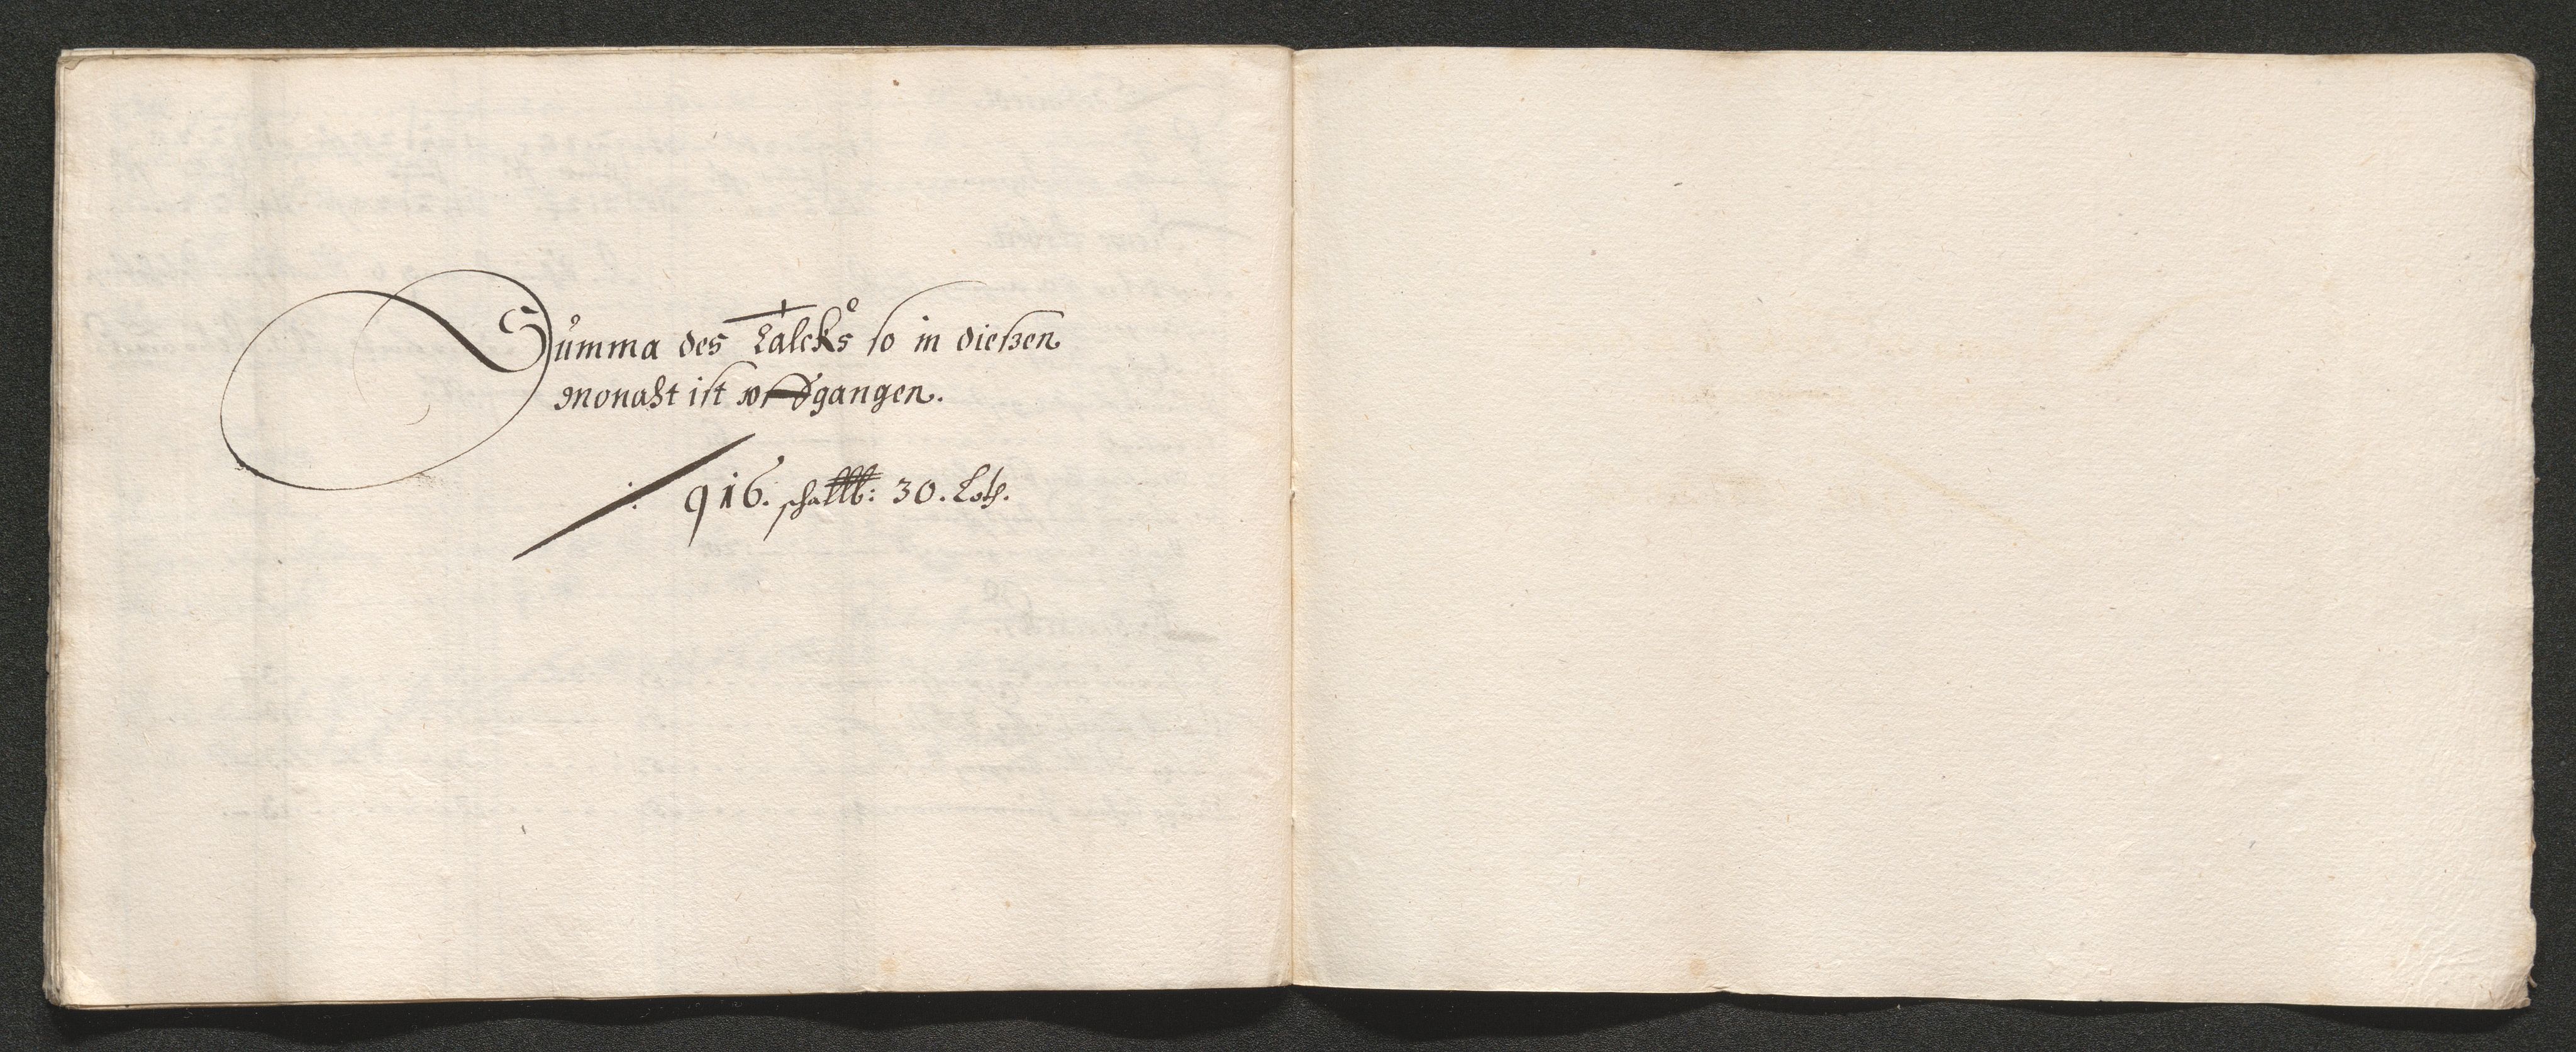 Summa des Talcks so in dießen
Monaht ist vfgangen.
916. schallb: 30. Loth.